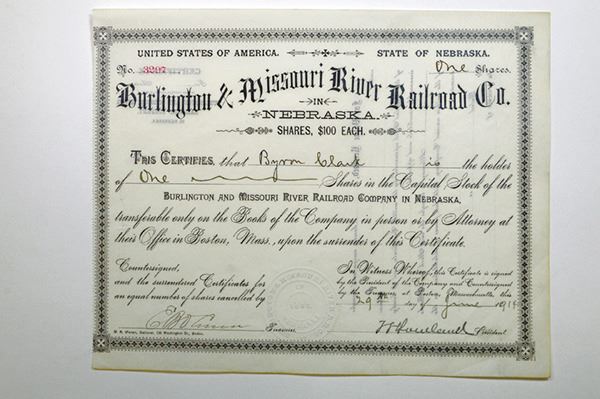 UNITED STATES OF AMERICA. STATE OF NEBRASKA.
No. 3297 One Shares.
Burlington & Missouri River Railroad Co.
IN
NEBRASKA.
SHARES, $100 EACH.
THIS CERTIFIES, that Byron Clark is the holder
of One Shares in the Capital Stock of the
BURLINGTON AND MISSOURI RIVER RAILROAD COMPANY IN NEBRASKA,
transferable only on the Books of the Company in person or by Attorney at
their Office in Boston, Mass., upon the surrender of this Certificate.
Countersigned,
and the surrendered Certificates for
an equal number of shares cancelled by
Treasurer
In Witness Whereof, this Certificate is signed
by the President of the Company and Countersigned
by the Treasurer, at Boston, Massachusetts, this
29th day of June
President